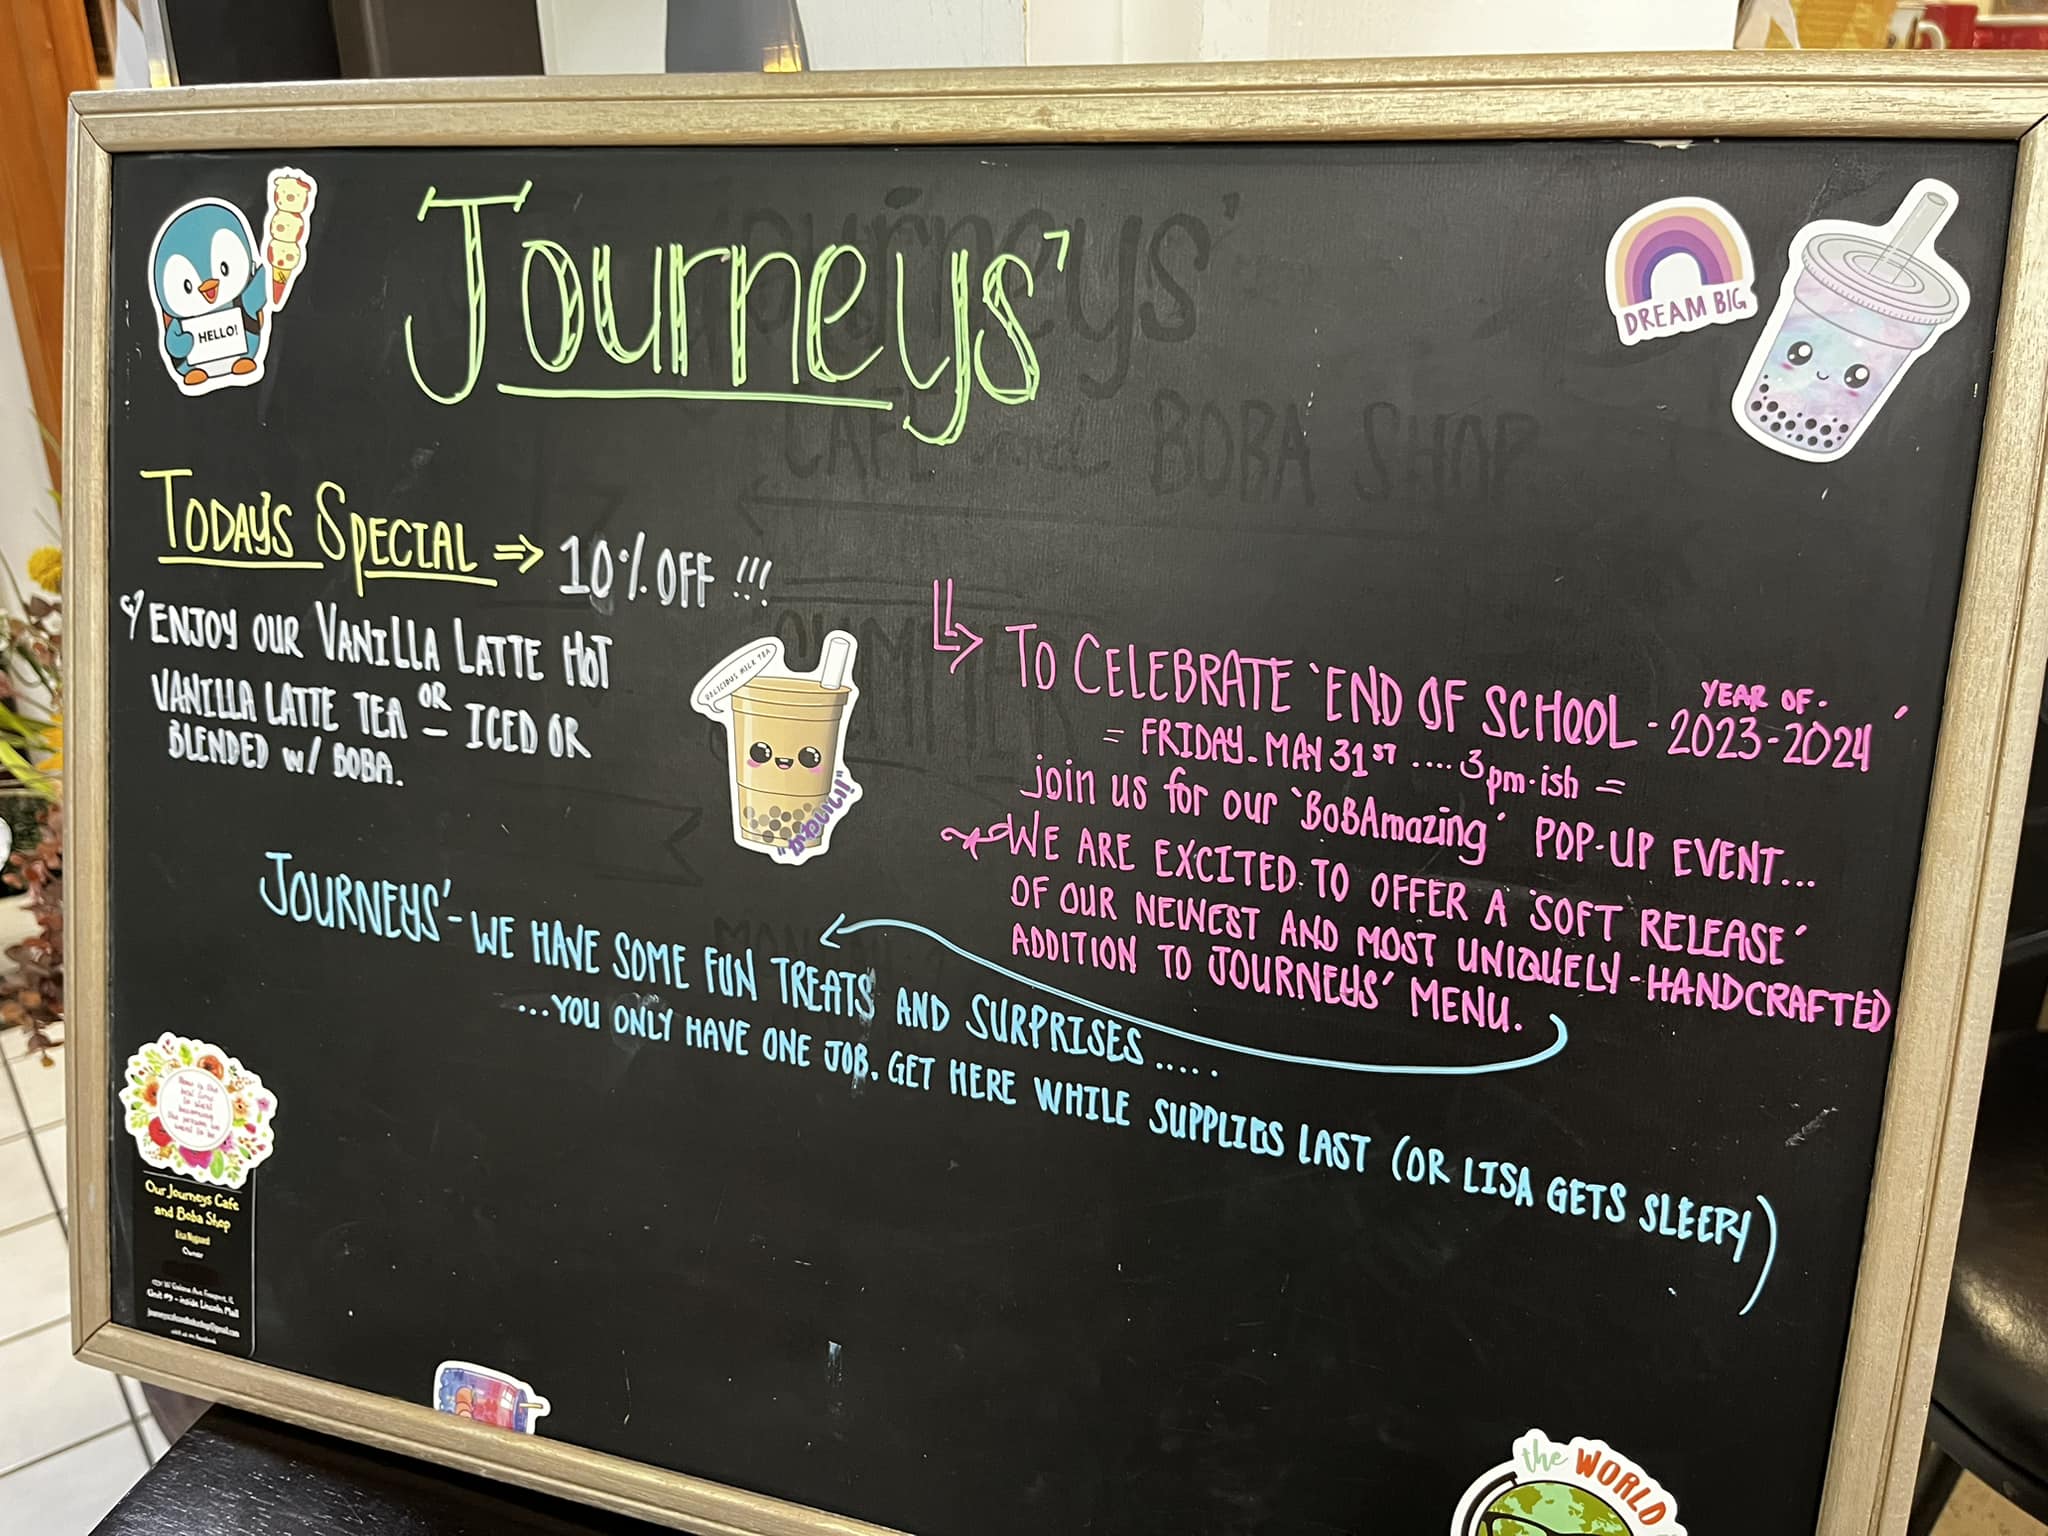 HELLO!
Journeys'
DREAM BIG
TODAY'S SPECIAL ⇒ 10% OFF !!!
ENJOY OUR VANILLA LATTE HOT
VANILLA LATTE TEA OR ICED OR
BLENDED w/ BOBA.
DELICIOUS MILK TEA
TO CELEBRATE 'END OF SCHOOL - YEAR OF - 2023-2024'
= FRIDAY. MAY 31ST .... 3pm-ish =
join us for our 'BoBAmazing' POP-UP EVENT...
WE ARE EXCITED TO OFFER A 'SOFT RELEASE'
OF OUR NEWEST AND MOST UNIQUELY-HANDCRAFTED
ADDITION TO JOURNEYS' MENU.
JOURNEYS' - WE HAVE SOME FUN TREATS AND SURPRISES.....
...YOU ONLY HAVE ONE JOB. GET HERE WHILE SUPPLIES LAST (OR LISA GETS SLEEPY)
CAFE and BOBA SHOP
SUMMER
Now is the
best time
to start
becoming
the person we
want to be
Our Journeys Cafe
and Boba Shop
Owner
Unit #9 - inside Lincoln Mall
the WORLD